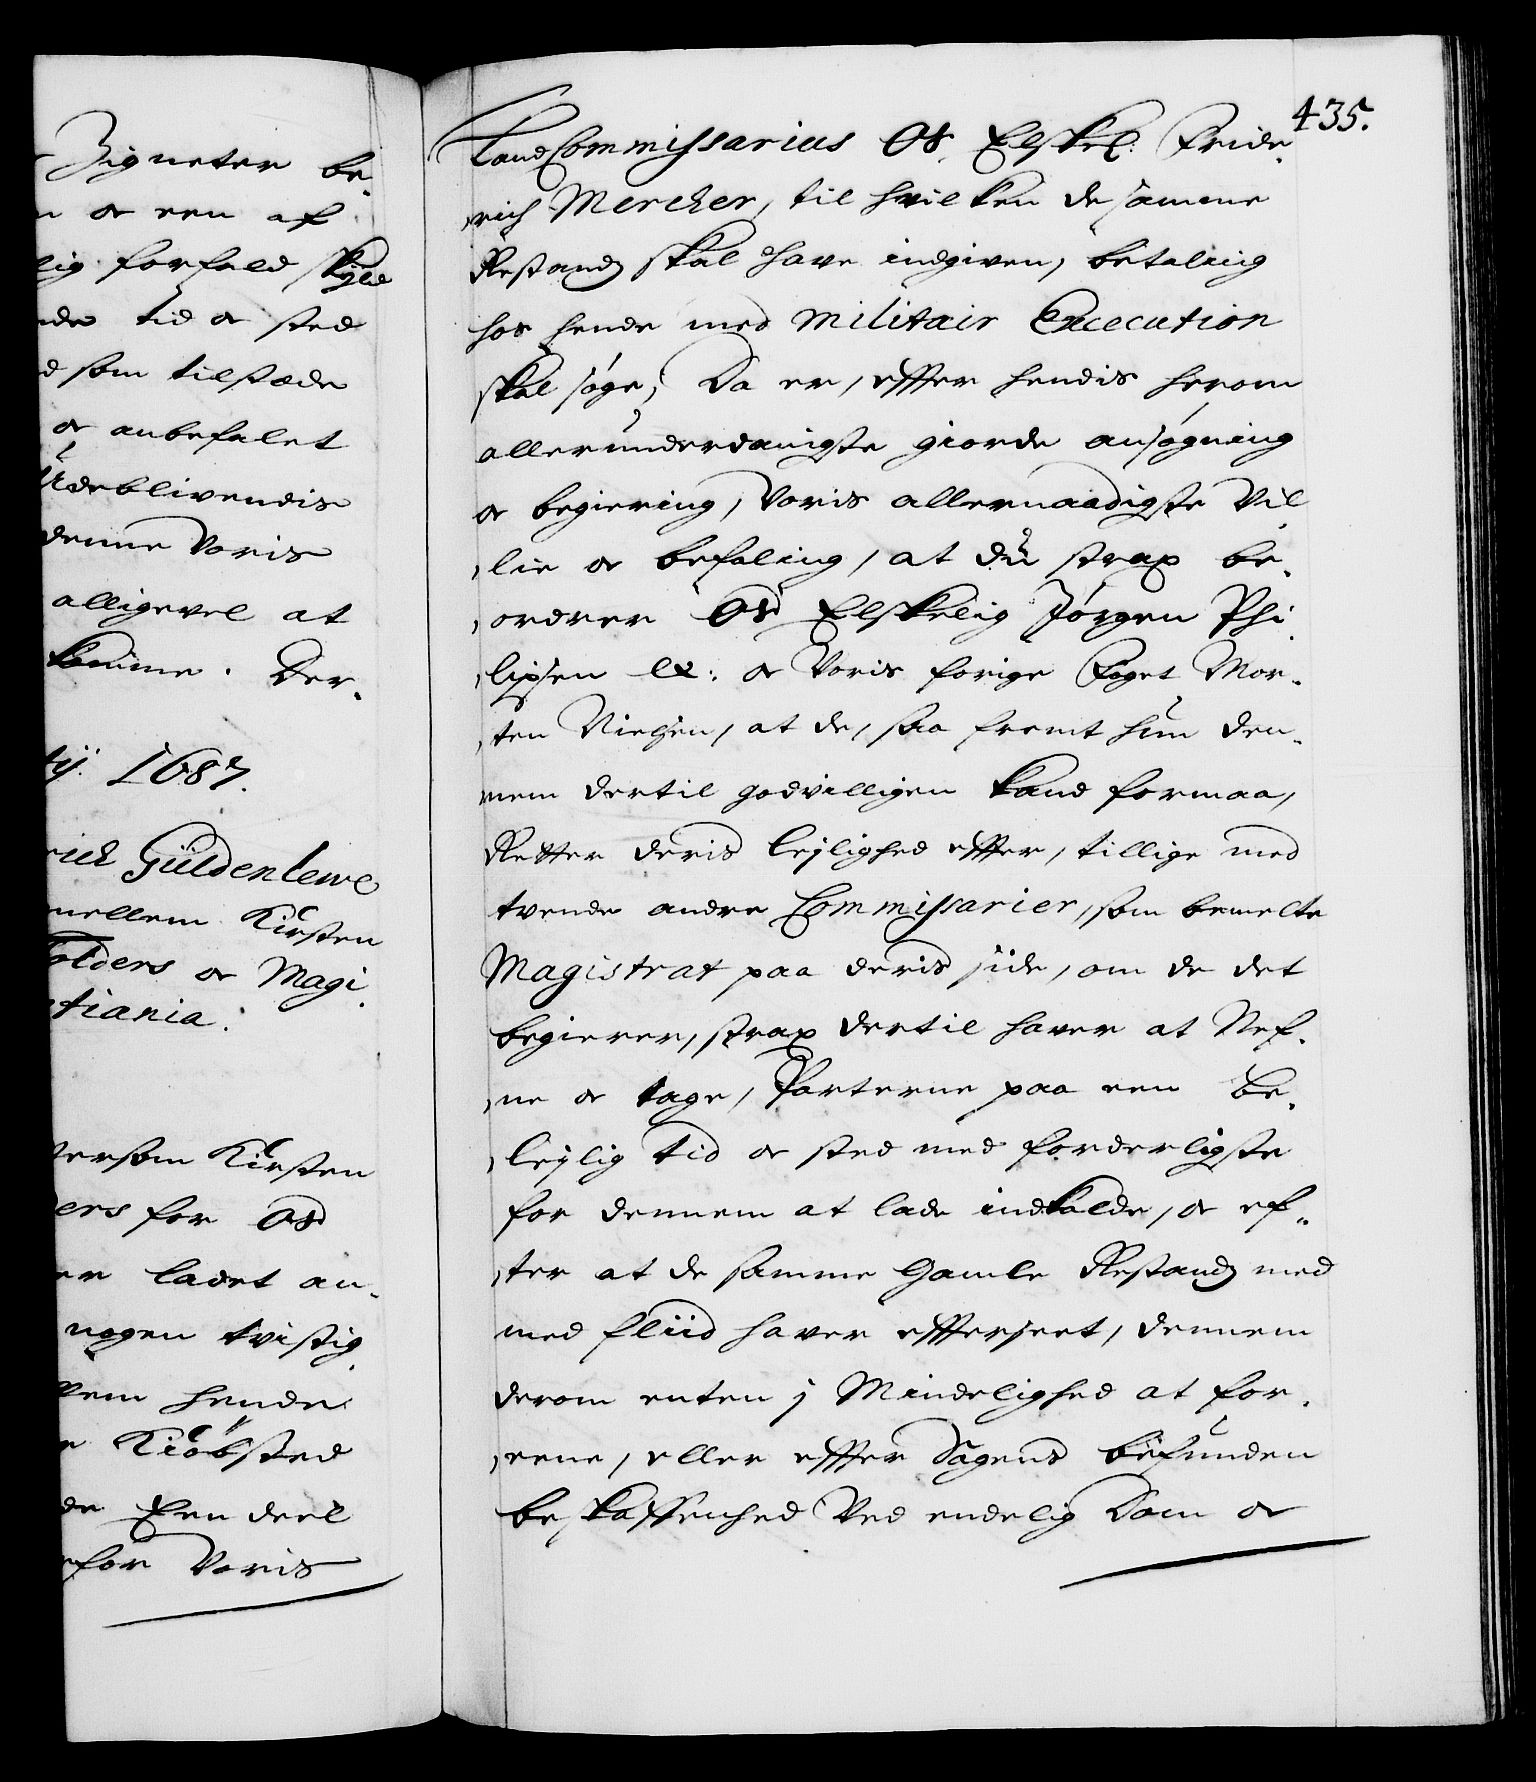 Zigneter be-
n oc een af
lig forfald skyld
nde tid oc sted
d som tilstæde
oc anbefalet
Udeblivendis
denne Voris
alligevel at
komme. Der-
tij 1687.
rich Güldenlewe
mellem Kirsten
folders oc Magi
tiania.
tersom Kirsten
ers for Os
er ladet an-
nogen tvistig
lem hende
e Kiöbsted
de Een deel
for Voris
435.
Land Commissarius Os Elskel: Fride-
rich Mercker, til hvilken de samme
Restandz skal have indgiven, betaling
hos hende med Militair Execution
skal søge, Da er, effter hendis herom
allerunderdanigste giorde ansøgning
oc begiering, Voris allernaadigste Vil
lie oc befaling, at du strax be-
ordrer Os Elskelig Jørgen Phi
lipsen &: oc Voris forige Foget Mor-
ten Nielsen, at de, saa fremt hun den-
nem dertil godvilligen kand formaa,
Retter deris lejlighed effter, tillige med
tvende andre Commissarier, som bemelte
Magistrat paa deris side, om de det
begierer, strax dertil haver at Nef-
ne oc tage, Parterne paa een be-
lejlig tid oc sted med forderligste
for dennem at lade indkalde, oc ef-
ter at de samme Gamle Restandz med
med fliid haver effterseet, dennem
derom enten j Mindelighed at for-
eene, eller effter Sagens befunden
beskaffenhed Ved endelig Dom oc